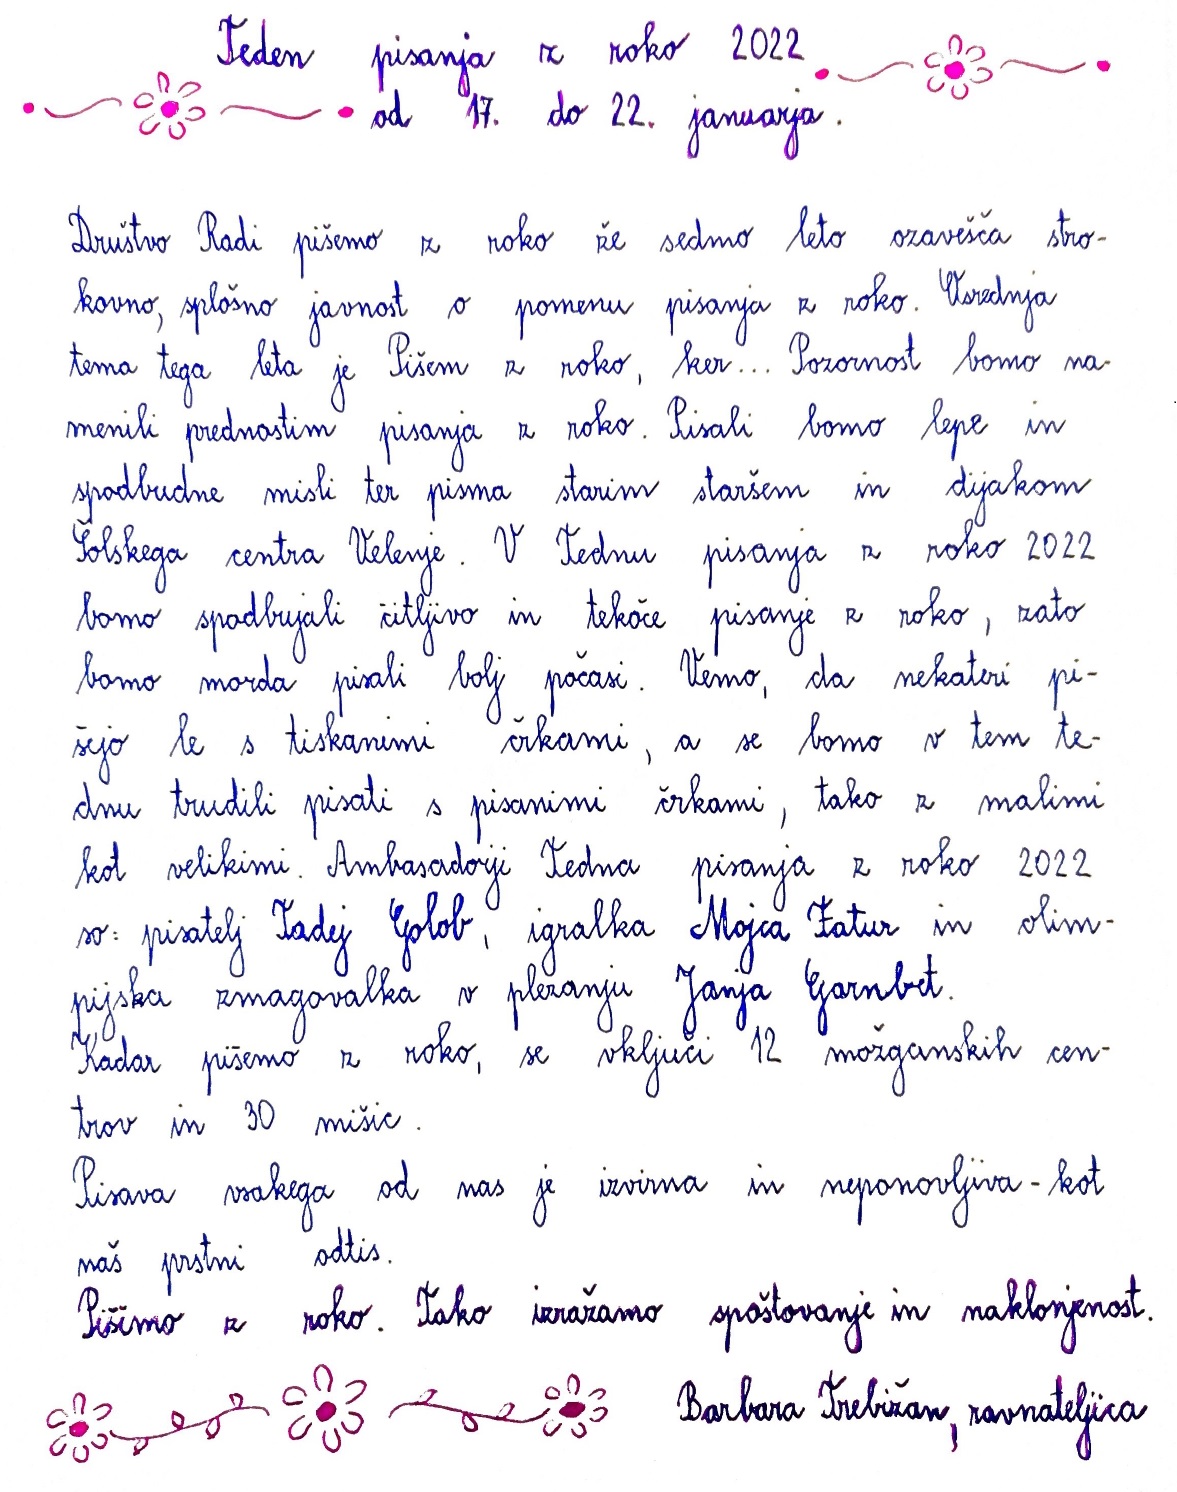 Teden pisanja z roko 2022
od 17. do 22. januarja.
Društvo Radi pišemo z roko že sedmo leto ozavešča stro-
kovno, splošno javnost o pomenu pisanja z roko. Osrednja
tema tega leta je Pišem z roko, ker... Pozornost bomo na-
menili prednostim pisanja z roko. Pisali bomo lepe in
spodbudne misli ter pisma starim staršem in dijakom
Šolskega centra Velenje. V Tednu pisanja z roko 2022
bomo spodbujali čitljivo in tekoče pisanje z roko, zato
bomo morda pisali bolj počasi. Vemo, da nekateri pi-
šejo le s tiskanimi črkami, a se bomo v tem te-
dnu trudili pisati s pisanimi črkami, tako z malimi
kot velikimi. Ambasadorji Tedna pisanja z roko 2022
so: pisatelj Tadej Golob, igralka Mojca Fatur in olim-
pijska zmagovalka v plezanju Janja Garnbret.
Kadar pišemo z roko, se vključi 12 možganskih cen-
trov in 30 mišic.
Pisava vsakega od nas je izvirna in neponovljiva - kot
naš prstni odtis.
Pišimo z roko. Tako izražamo spoštovanje in naklonjenost.
Barbara Trebižan, ravnateljica